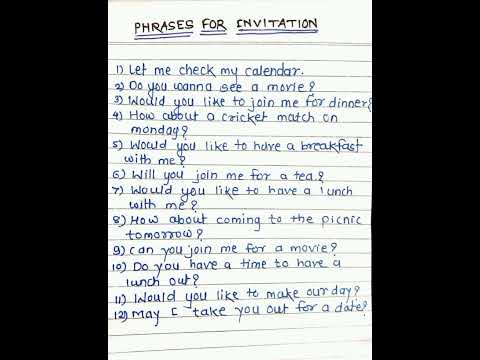 PHRASES FOR INVITATION
1) Let me check my calendar.
2) Do you wanna see a movie?
3) Would you like to join me for dinner?
4) How about a cricket match on
monday?
5) Would you like to have a breakfast
with me?
6) Will you join me for a tea?
7) Would you like to have a lunch
with me?
8) How about coming to the picnic
tomorrow?
9) Can you join me for a movie?
10) Do you have a time to have a
lunch out?
11) Would you like to make our day?
12) May I take you out for a date?